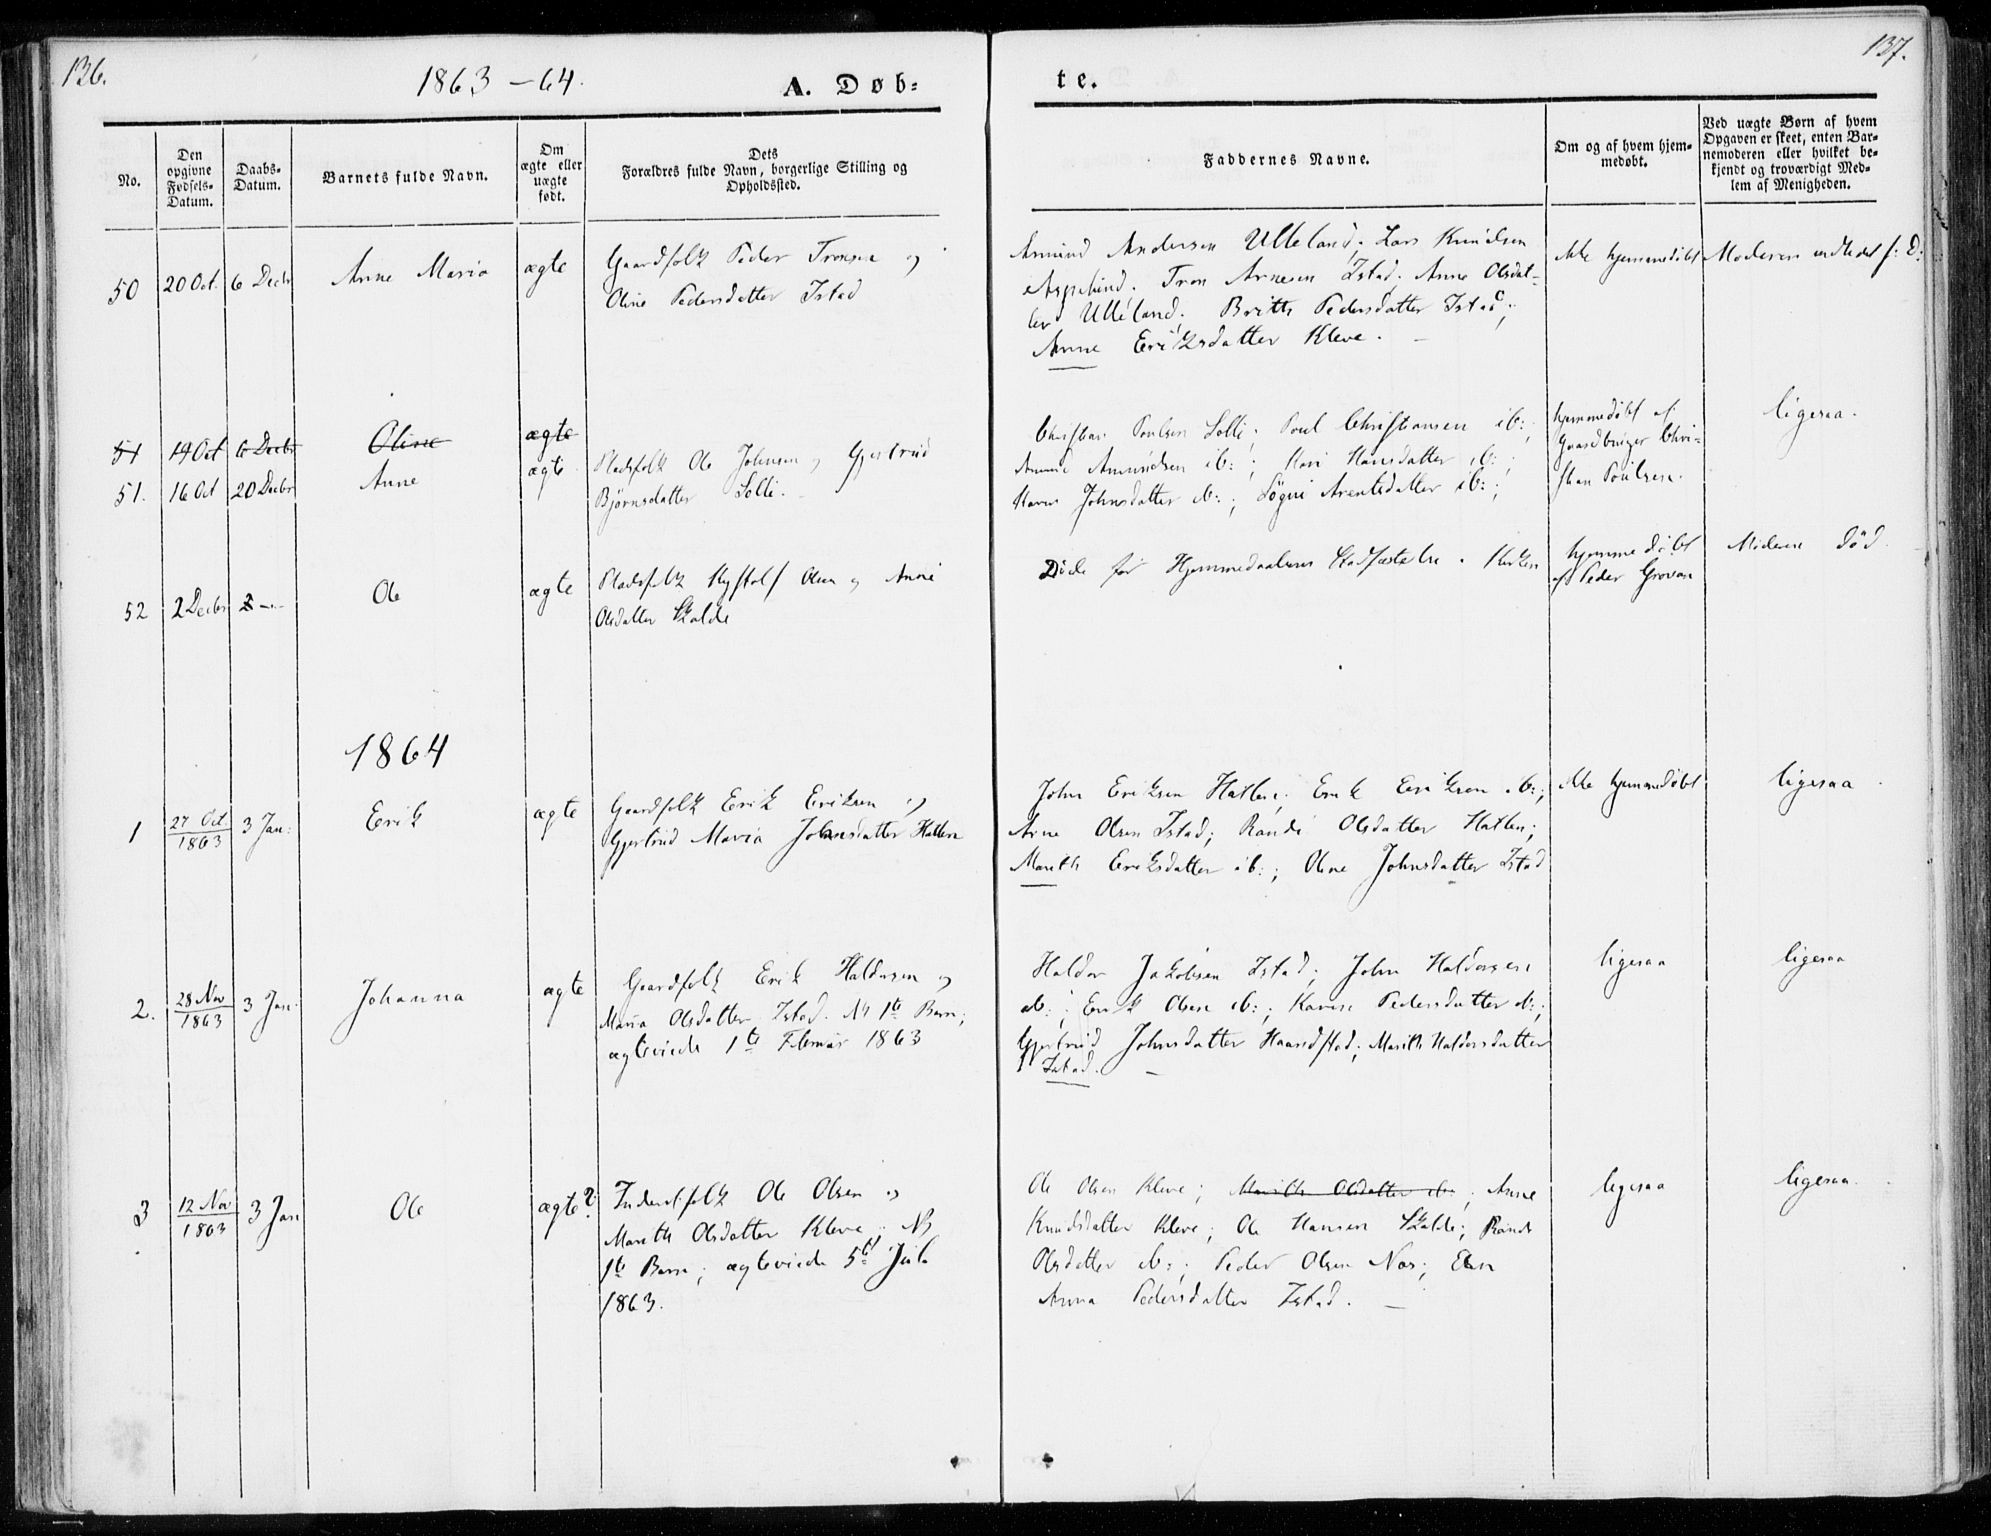 136.
1863 – 64.
A. Døb-
te.
137.
No.
Den opgivne Fødsels-Datum.
Daabs-Datum.
Barnets fulde Navn.
Om ægte eller uægte født.
Dets Forældres fulde Navn, borgerlige Stilling og Opholdssted.
Faddernes Navne.
Om og af hvem hjem-medøbt.
Ved uægte Børn af hvem Opgaven er skeet, enten Bar-nemoderen eller hvilket be-kjendt og troværdigt Med-lem af Menigheden.
50 20 Oct. 6 Decbr Anne Maria ægte
Gaardfolk Peder Tronsen og
Oline Pedersdatter Istad
Amund Andersen Ulleland; Lars Knudsen
Aspelund. Tron Arnesen Istad. Anne Olsdat-
ter Ulleland. Brith Pedersdatter Istad;
Anne Eriksdatter Kleve. –
Ikke hjemmedøbt
Moderen indledet f: D:
51 14 Oct 6 Decbr Oline ægte
51. 16 Oct 20 Decbr Anne ægte
Pladsfolk Ole Johnsen og Gjertrud
Bjørnsdatter Solli.
Christian Poulsen Solli; Poul Christiansen ib:;
Amund Amundsen ib:; Kari Hansdatter ib:;
Karen Johnsdatter ib:; Søgni Arentsdatter ib:;
hjemmedøbt af
Gaardbruger Chri-
stian Poulsen.
ligesaa.
52 2 Decbr 2 – Ole ægte
Pladsfolk Olsen og Anne
Olsdatter Skalde
Døde før Hjemmedaabens Stadfæstelse i Kirken
hjemmedøbt
af Peder Grovan
Moderen død.
1864
1 27 Oct 1863 3 Jan: Erik ægte
Gaardfolk Erik Eriksen og
Gjertrud Maria Johnsdatter Hatlen
John Eriksen Hatlen; Erik Eriksen ib:;
Arne Olsen Istad; Randi Olsdatter Hatlen;
Marith Eriksdatter ib:; Oline Johnsdatter Istad
Ikke hjemmedøbt
ligesaa
2. 28 Nov 1863 3 Jan. Johanna ægte
Gaardfolk Erik Haldorsen og
Maria Olsdatter Istad. NB 1te Barn;
ægteviede 1te Februar 1863
Haldor Jakobsen Istad; John Haldorsen
ib:; Erik Olsen ib:; Karen Pedersdatter ib:;
Gjertrud Johnsdatter Haandstad; Marith Haldorsdatter
Istad. –
ligesaa
ligesaa
3 12 Nov 1863 3 Jan Ole ægte?
Inderstfolk Ole Olsen og
Marith Olsdatter Kleve; NB
1te Barn; ægteviede 5te Juli
1863.
Ole Olsen Kleve; Marith Olsdatter ib:; Anne
Knudsdatter Kleve; Ole Hansen Skalde; Randi
Olsdatter ib:; Peder Olsen Nos; Elen
Anna Pedersdatter Istad. –
ligesaa
ligesaa.